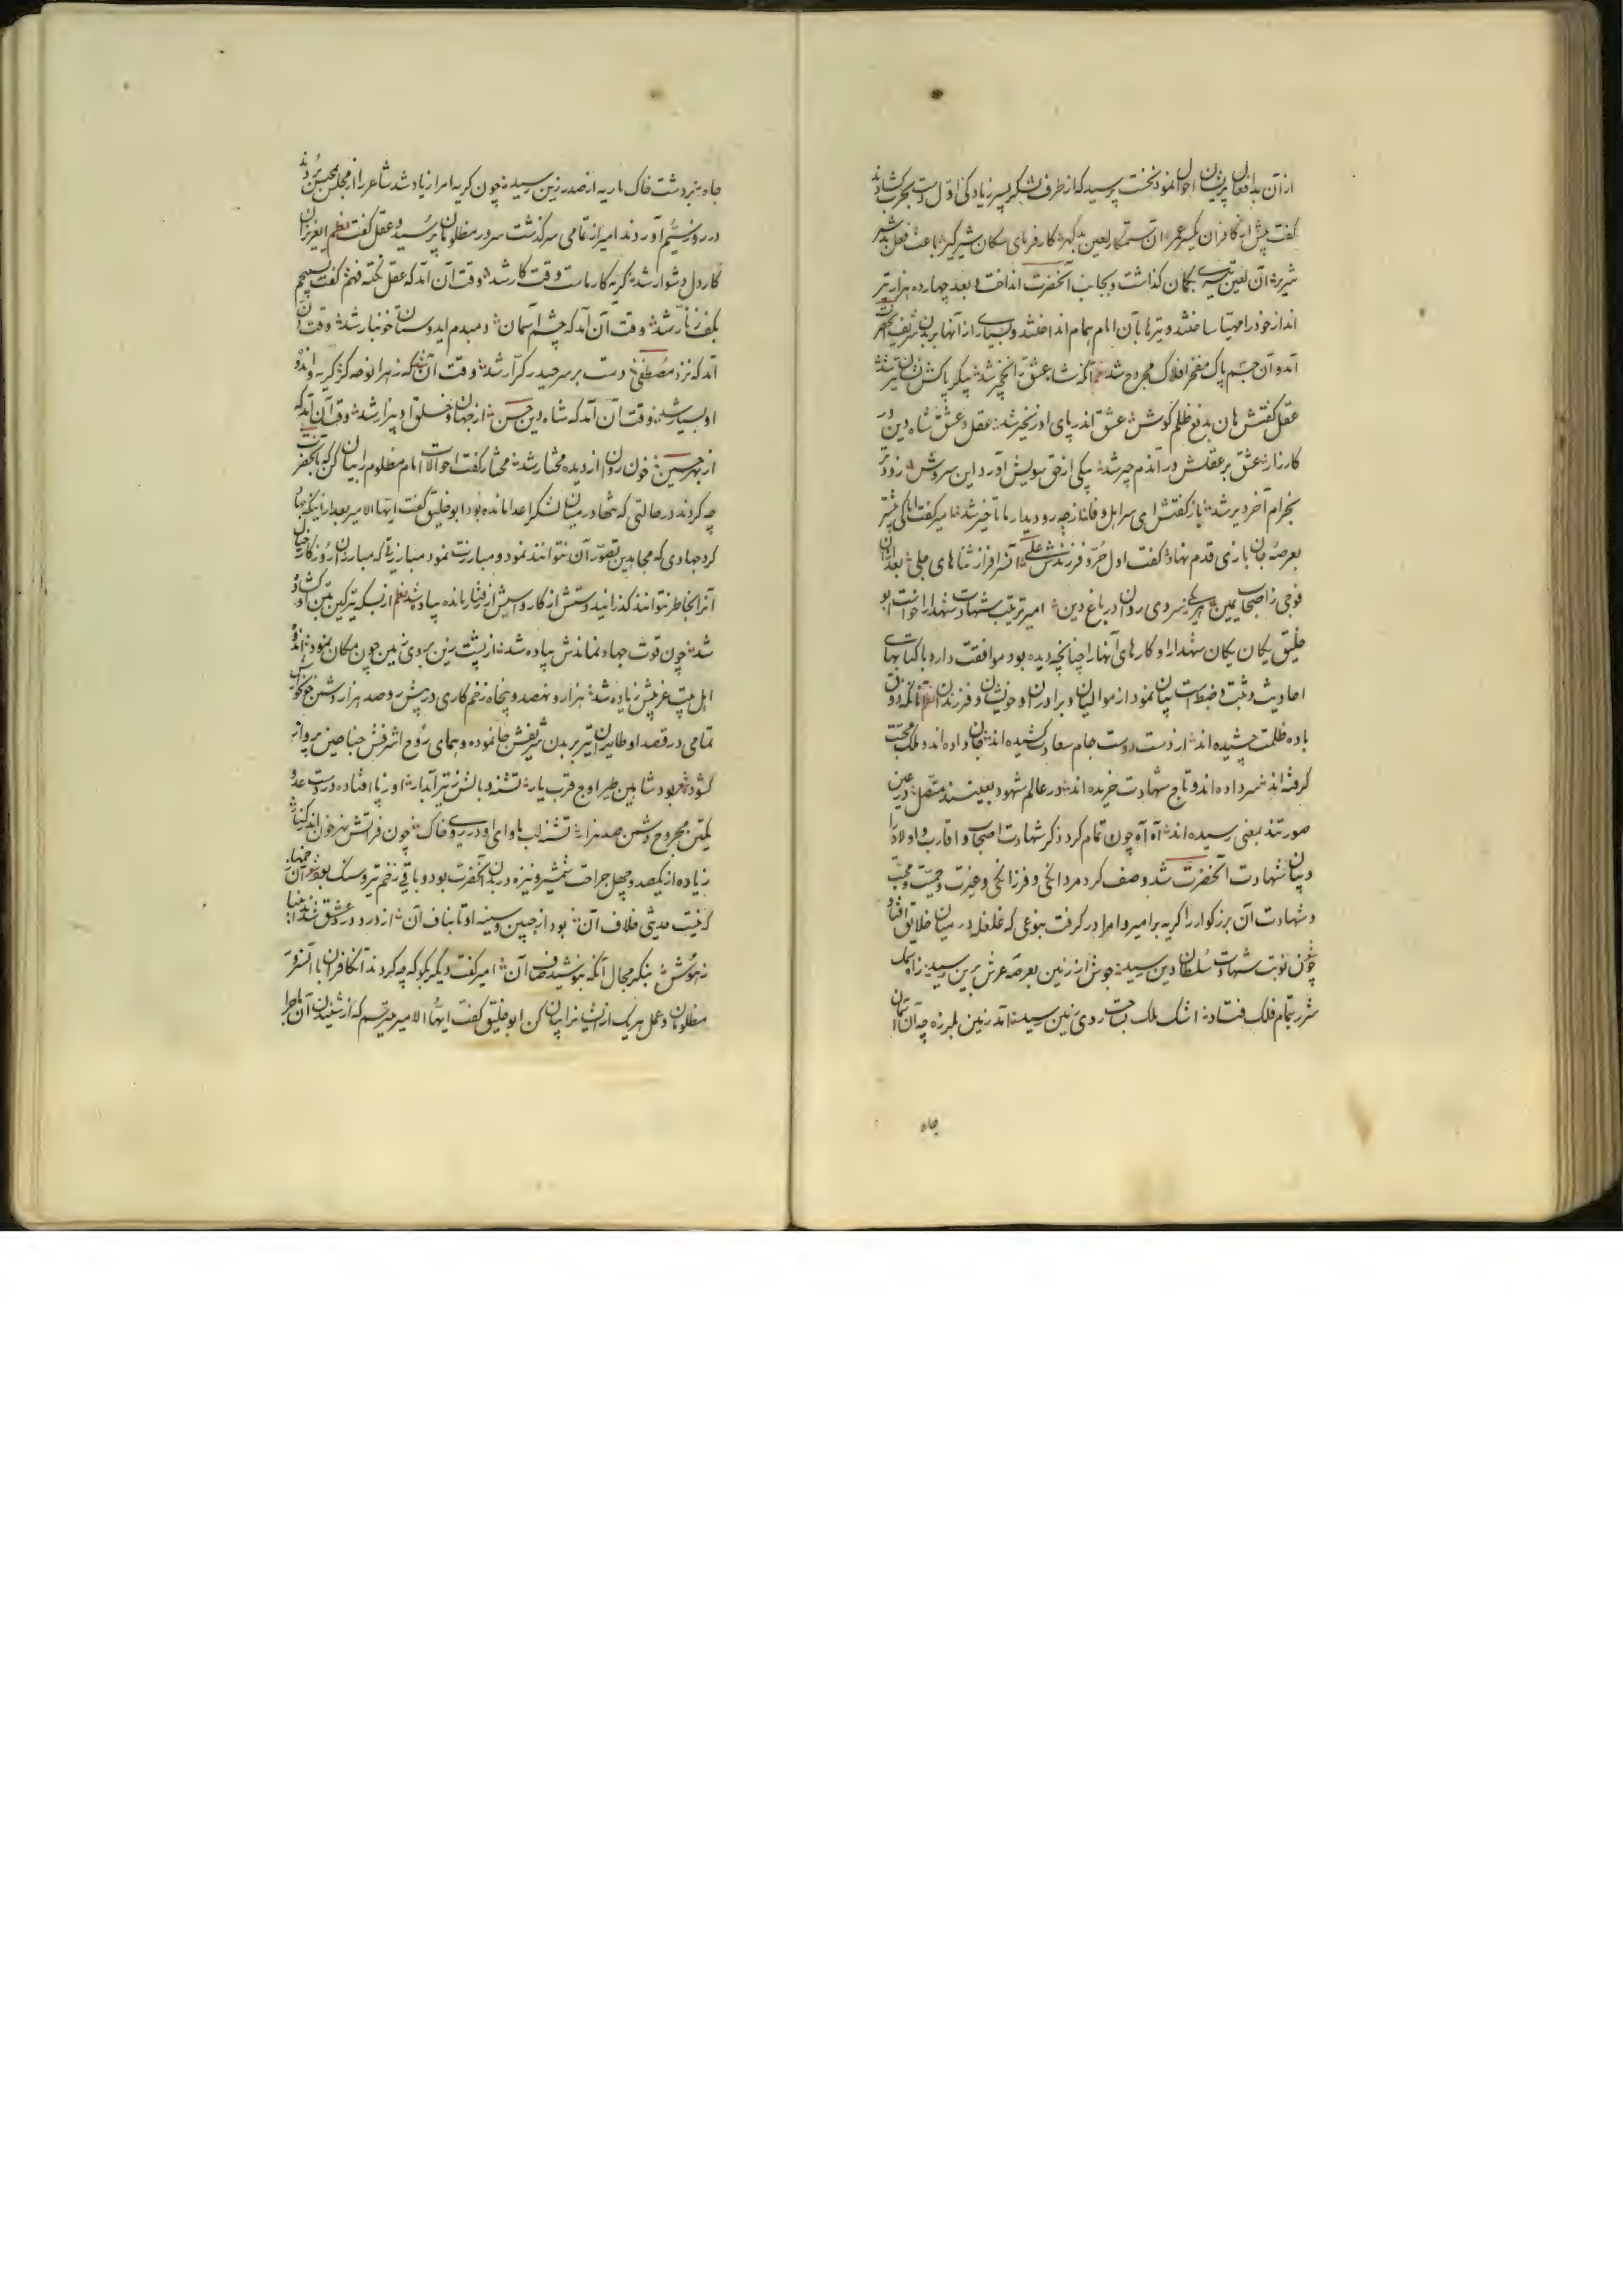 از آن بدافعال پریشان احوال نمود نخست پرسید که از طرف لشکر پسر زیاد کی اول دست بحرب کشادند
گفت پیش از کافران یکسر عمر آن ستمکار لعین بدگهر کارفرمای سکان شیر گیر باعث فعل بد شر
شریر آن لعین تیری بکمان گذاشت و بجانب آنحضرت انداخت و بعد چهارده هزار تیر
انداز خود را مهیا ساختند و تیرها بآن امام همام انداختند و بسیاری از آنها بر بدن شریف آنحضرت
آمد و آن جسم پاک مفخر افلاک مجروح شد نظم آنکه شاه عشق را نخچیر شد پیکر پاکش نشان تیر شد
عقل گفتش هان بدفع ظلم کوش عشق اندر پای او زنجیر شد عقل و عشق شاه دین در
کارزار عشق بر عقلش در آندم چیر شد پیکی از حق سویش آورد این سروش زودتر
بخرام آخر دیر شد باز گفتش ای سرایل وفا از چه رو دیدار ما تاخیر شد امیر گفت اما کی پیشتر
بعرصه جان بازی قدم نهاد گفت اول حر و فرزندش علی آنسرافراز ثناهای جلی بعد از آن
فوجی ز اصحاب یمین هر یکی سروی روان در باغ دین امیر ترتیب شهادت شهدا را خواست ابو
خلیق یکان یکان شهدا را و کارهای آنها را چنانچه دیده بود موافقت دارد با کتابهای
احادیث و ثبت و ضبط است بیان نمود از موالیان و برادران و خویشان و فرزندان نظم آنانکه ذوق
باده ظلمت چشیده اند از دست دوست جام سعادت کشیده اند جان داده اند و ملک محبت
گرفته اند سر داده اند و تاج شهادت خریده اند در عالم شهود بعینند متصل در عین
صورتند بمعنی رسیده اند آه آه چون تمام کرد ذکر شهادت اصحاب و اقارب و اولاد را
و بیان شهادت آنحضرت شد وصف کرد مردانگی و فرزانگی و غیرت و حمیت و محبت
و شهادت آن بزرگوار را گریه بر امیر و امرا در گرفت بنوعی که غلغله در میان خلایق افتاد
چون نوبت شهادت سلطان دین رسید جوش از زمین بعرصه عرش برین رسید ز آه سمک
شرر بتمام فلک فتاد اشک ملک بساحت روی زمین رسید آمد زمین بلرزه چه آن آسمان
جاه
جاه بنبرد شت خاک ماریه از صدر زین رسید چون گریه امرا زیاد شد شاعر را از مجلس بحبس بردند
در روز سیم آوردند امیر از تمامی سرگذشت سرور مظلومان پرسید و عقل گفت نظم ایعزیزان
کار دل دشوار شد گریه کار ماست وقت کار شد وقت آن آمد که عقل نکته فهم گفت تسبیحم
بکف زنار شد وقت آن آمد که چشم آسمان دمبدم ایدوستان خونبار شد وقت آن
آمد که نزد مصطفی دست بر سر حیدر کرار شد وقت آن شد که زهرا نوحه کرد گریه و اندوه
او بسیار شد وقت آن آمد که شاه دین حسن از جهان و خلق او بیزار شد وقت آن آمد که
از بهر حسین خون روان از دیده مختار شد مختار گفت احوالات امام مظلوم را بیان کن که با آنحضرت
چه کردند در حالتی که تنها در میان لشکر اعدا مانده بود ابو خلیق گفت ایها الامیر بعد از اینکه جهاد
کرد جهادی که مجاهدین تصور آن نتوانند نمود و مبارزت نمود مبارزتی که مبارزان روزگار خیال
آنرا بخاطر نتوانند گذرانید دستش از کار و اسبش از رفتار مانده پیاده شد نظم از بسکه تیر کین بتن او کشاد
شد چون قوت جهاد نماندش پیاده شد از پشت زین بروی زمین چون مکان نمود اندوه
اهل بیت غریبش زیاده شد هزار و نهصد و پنجاه زخم کاری در پیش و صد هزار دشمن خونخوار
تمامی در قصد او طایران تیر بر بدن شریفش جا نموده و همای روح اشرفش جناحین پرواز
کشود شعر بود شاهین طیر اوج قرب یار تشنه و بالش ز تیر آبدار او ز پا افتاده در دست عدو
یکتن مجروح و دشمن صد هزار تشنه لب ماوای او در روی خاک چون فراتش نهر خون اندر کنار
زیاده از یکصد و چهل جراحت شمشیر و نیزه در بدن آنحضرت بود و باقی زخم تیر و سنگ بود
که نیست حدیثی خلاف آن بود از جبین و سینه او تا بناف آن از درد و درد عشق شد
زهوش بنگر مجال آنکه بنوشید صاف آن امیر گفت دیگر بگو که چه کردند آنکافران با آنسرور
مظلومان و عمل هر یک از ایشان را بیان کن ابو خلیق گفت ایها الامیر میترسم که از شنیدن آن ماجرا